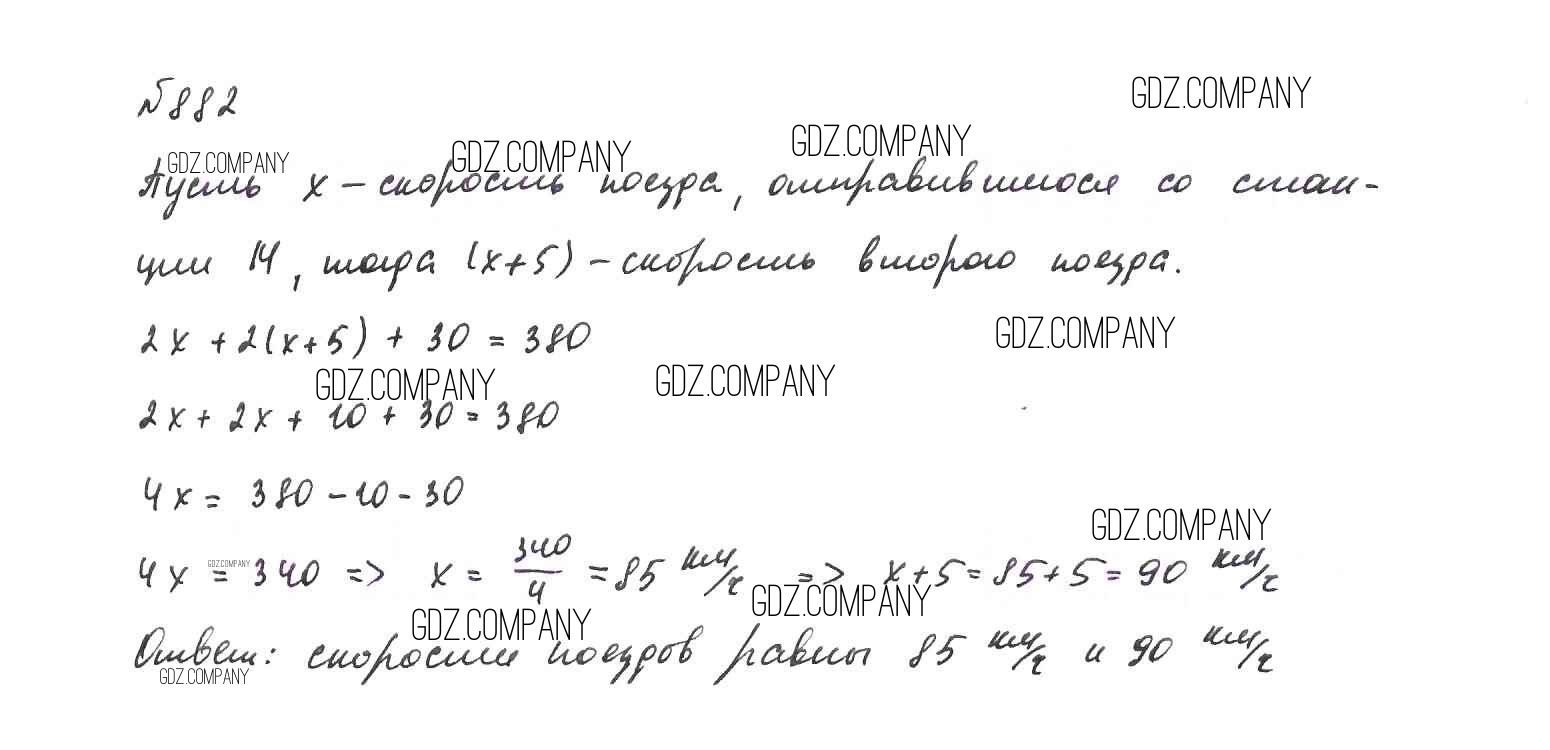 №882
GDZ.COMPANY
GDZ.COMPANY GDZ.COMPANY GDZ.COMPANY
Пусть x – скорость поезда, отправившегося со стан-
ции М, тогда (x+5) – скорость второго поезда.
2x + 2(x+5) + 30 = 380
GDZ.COMPANY
GDZ.COMPANY GDZ.COMPANY
2x + 2x + 10 + 30 = 380
4x = 380 – 10 – 30
GDZ.COMPANY
4x = 340 => x = 340/4 = 85 км/ч => x+5 = 85+5 = 90 км/ч
GDZ.COMPANY
GDZ.COMPANY GDZ.COMPANY
Ответ: скорости поездов равны 85 км/ч и 90 км/ч
GDZ.COMPANY